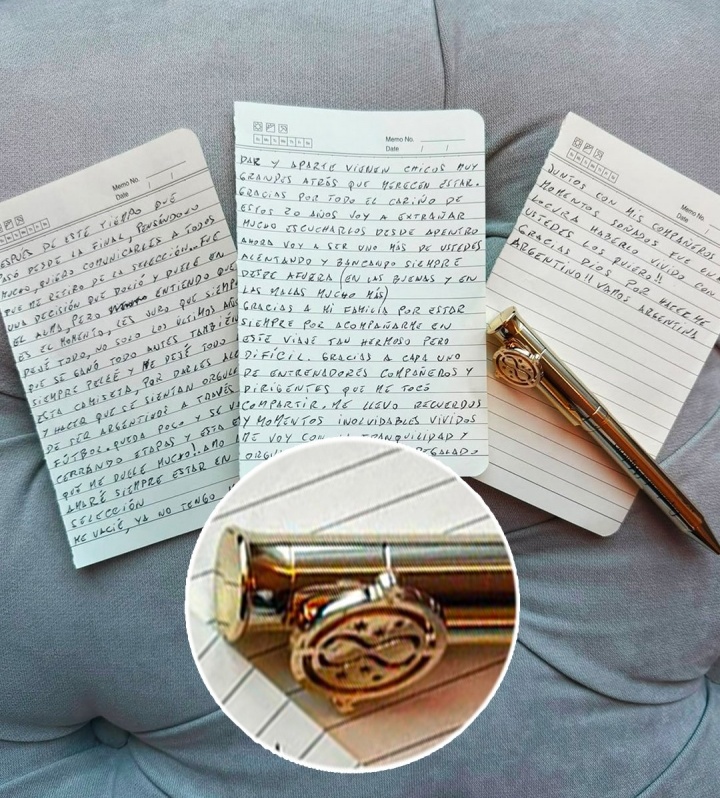 DESPUES DE ESTE TIEMPO QUE
PASÓ DESDE LA FINAL, PENSÁNDOLO
MUCHO, QUIERO COMUNICARLES A TODOS
QUE ME RETIRO DE LA SELECCIÓN. FUE
UNA DECISIÓN QUE DOLIÓ Y DUELE EN
EL ALMA, PERO ENTIENDO QUE
ES EL MOMENTO. LES JURO QUE SIEMPRE
DEJÉ TODO, NO SOLO LOS ÚLTIMOS AÑOS
QUE SE GANÓ TODO ANTES TAMBIÉN
SIEMPRE PELEÉ Y ME DEJÉ TODO
ESTA CAMISETA, POR DARLES
Y HACER QUE SE SIENTAN
DE SER ARGENTINOS A TRAVÉS
FÚTBOL. QUEDA POCO Y SE
CERRANDO ETAPAS Y ESTA
QUE ME DUELE MUCHO. AMO
AMARÉ SIEMPRE ESTAR EN
SELECCIÓN
ME VACIÉ, YA NO TENGO
Memo No.
Date / /
DAR Y APARTE VIENEN CHICOS MUY
GRANDES ATRÁS QUE MERECEN ESTAR.
GRACIAS POR TODO EL CARIÑO DE
ESTOS 20 AÑOS VOY A EXTRAÑAR
MUCHO ESCUCHARLOS DESDE ADENTRO
AHORA VOY A SER UNO MÁS DE USTEDES
ALENTANDO Y BANCANDO SIEMPRE
DESDE AFUERA (EN LAS BUENAS Y EN
LAS MALAS MUCHO MÁS)
GRACIAS A MI FAMILIA POR ESTAR
SIEMPRE POR ACOMPAÑARME EN
ESTE VIAJE TAN HERMOSO PERO
DIFÍCIL. GRACIAS A CADA UNO
DE ENTRENADORES COMPAÑEROS Y
DIRIGENTES QUE ME TOCÓ
COMPARTIR. ME LLEVO RECUERDOS
Y MOMENTOS INOLVIDABLES VIVIDOS
ME VOY CON LA TRANQUILIDAD Y
REGALADO
Memo No.
Date / /
JUNTOS CON MIS COMPAÑEROS
MOMENTOS SOÑADOS FUE UNA
LOCURA HABERLO VIVIDO CON
USTEDES LOS QUIERO!!
GRACIAS DIOS POR HACERME
ARGENTINO!! VAMOS ARGENTINA
Memo No.
Date /